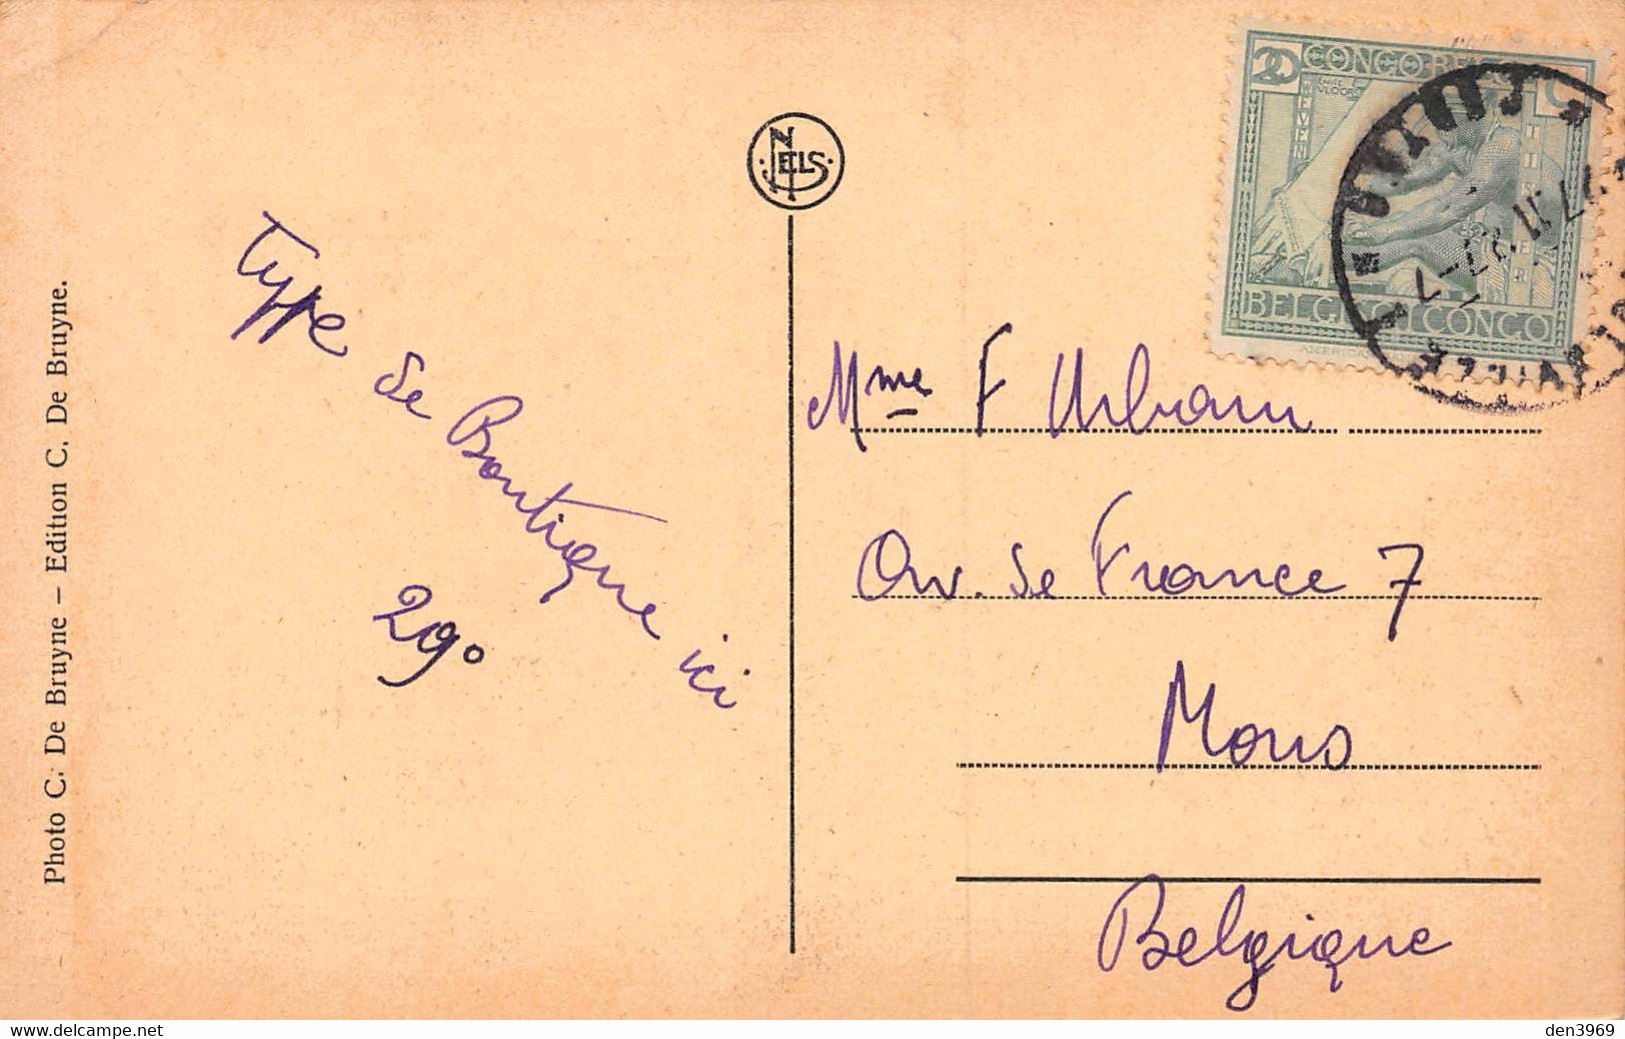 Photo C. De Bruyne – Edition C. De Bruyne.
NELS
Type de Boutique ici
29°
20 CONGO BELGE
EMILE VLOORS
WEVEN
BELGISCH CONGO
Mme F Urbain
Av. de France 7
Mons
Belgique
den3969